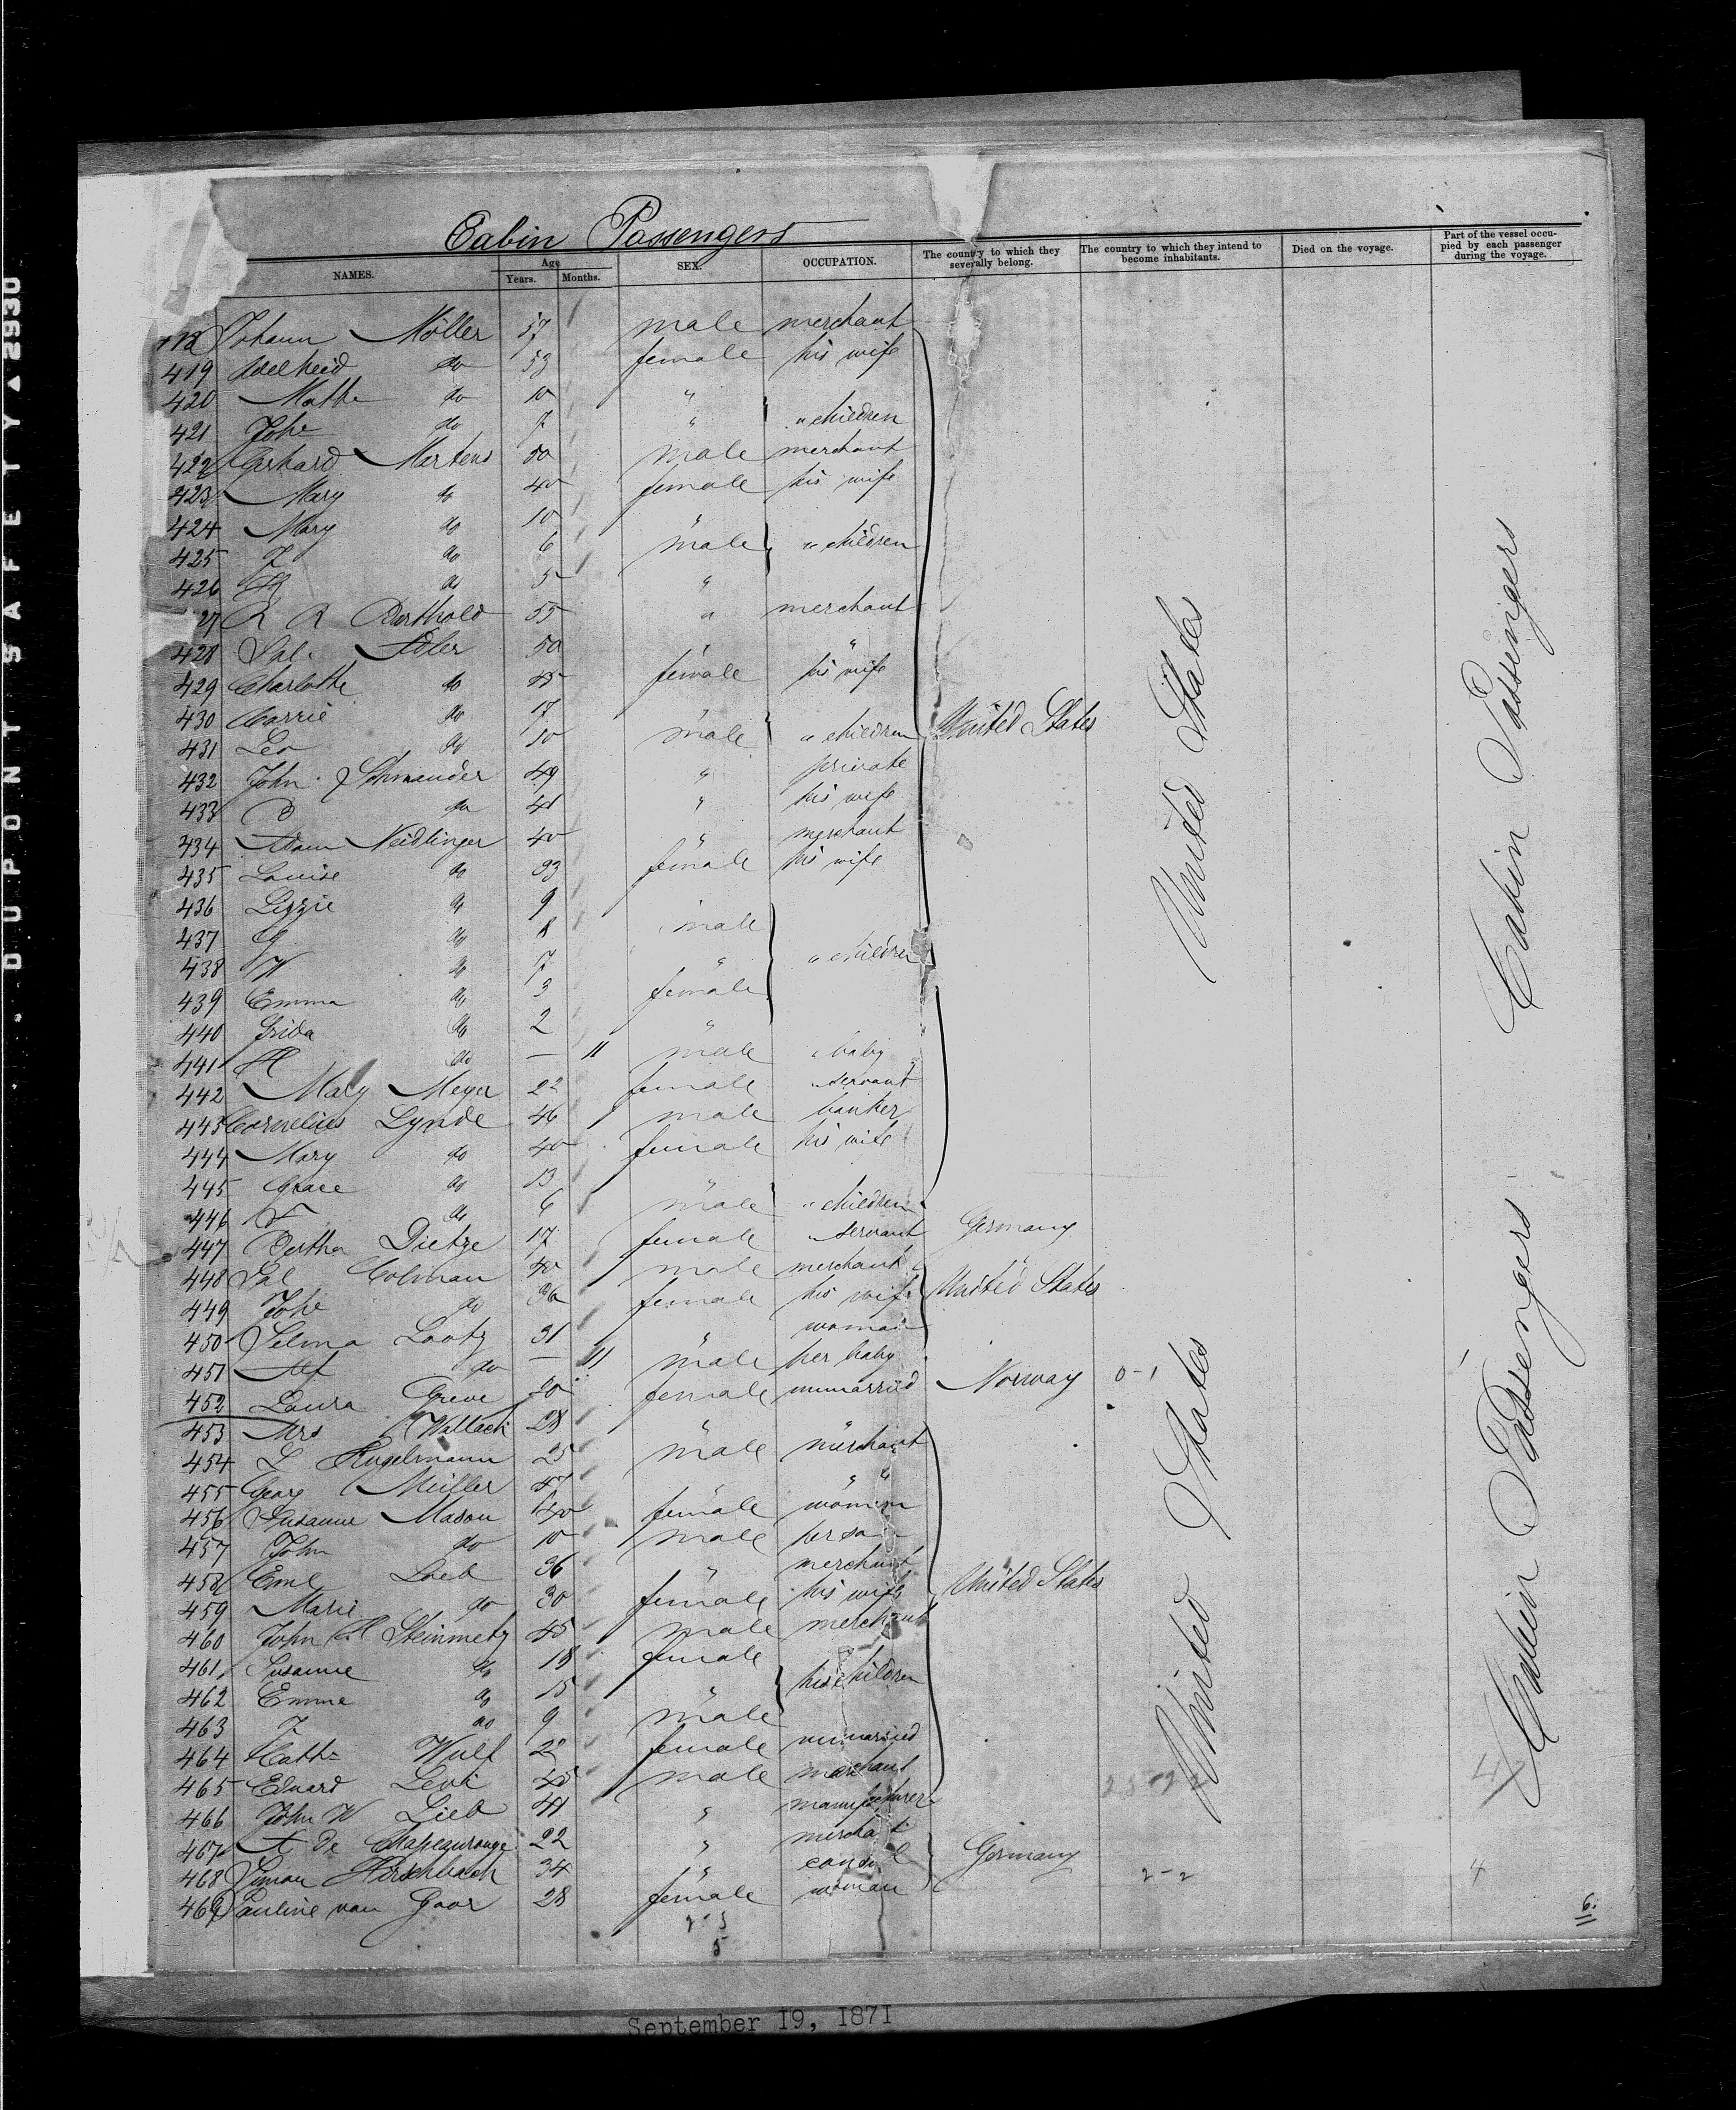 DUPONT SAFETY ▲ 2930
Cabin Passengers
NAMES. Age Years. Months. SEX. OCCUPATION. The country to which they severally belong. The country to which they intend to become inhabitants. Died on the voyage. Part of the vessel occupied by each passenger during the voyage.
Johann Möller 57 male merchant
419 Adelheid do 53 female his wife
420 Mathe do 10 "
421 Johe do 7 " " children
422 Gerhard Martens 50 male merchant
423 Mary do 40 female his wife
424 Mary do 10 "
425 J do 6 male " children
426 H do 5 "
27 R R Berthold 55 " merchant
428 Sal. Adler 50 " "
429 Charlotte do 45 female his wife
430 Carrie do 17 "
431 Leo do 10 male " children United States
432 John Schmauder 49 " private
433 do 41 " his wife
434 Adam Neidlinger 40 " merchant
435 Louise do 33 female his wife
436 Lizzie do 9
437 G do 8 male
438 W do 7 " " children
439 Emma do 3 female
440 Frida do 2 "
441 H do — 11 male " baby
442 Mary Meyer 22 female " servant
443 Cornelius Lynde 46 male banker
444 Mary do 40 female his wife
445 Grace do 13 "
446 F do 6 male " children
447 Bertha Dietze 17 female " servant Germany
448 Sal Colman 40 male merchant
449 Johe do 36 female his wife United States
450 Selma Lootz 31 " woman
451 Alf do — 11 male her baby
452 Laura Greve 20 female unmarried Norway 0-1
453 Mrs Wallach 28 "
454 L Kugelmann 25 male merchant
455 Georg Müller 47 " "
456 Susanne Mason 40 female woman
457 John do 10 male her son
458 Emil Loeb 36 " merchant
459 Marie do 30 female his wife United States
460 John H Steinmetz 45 male merchant
461 Susanne do 18 female
462 Emme do 15 " his children
463 J do 9 male
464 Cathe Wulf 22 female unmarried
465 Eduard Levi 45 male merchant
466 John W Lieb 41 " manufacturer
467 A de Chapeaurouge 22 " merchant
468 Simon Hirschbach 34 " consul Germany 2-2 4
469 Pauline van Goor 28 female woman
5
6.
United States
United States
Cabin Passengers
Cabin Passengers
September 19, 1871